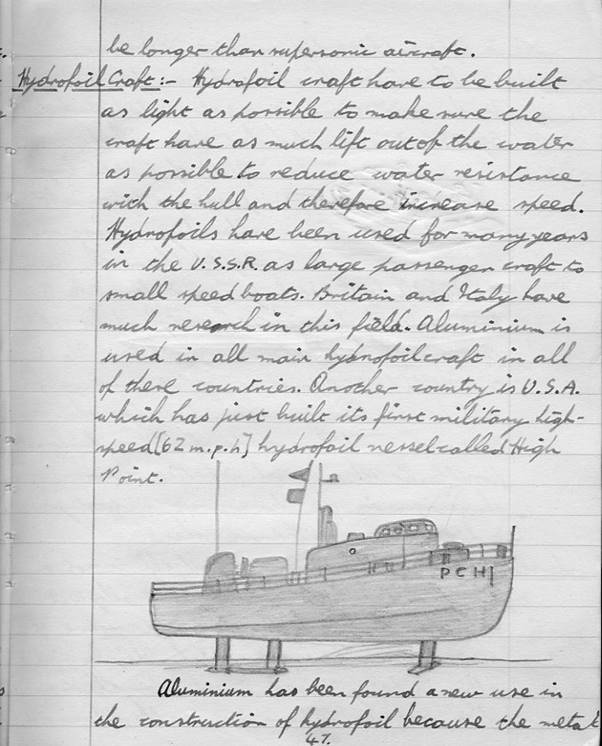 be longer than supersonic aircraft.
Hydrofoil Craft:- Hydrofoil craft have to be built
as light as possible to make sure the
craft have as much lift out of the water
as possible to reduce water resistance
with the hull and therefore increase speed.
Hydrofoils have been used for many years
in the U.S.S.R. as large passenger craft to
small speed boats. Britain and Italy have
much research in this field. Aluminium is
used in all main hydrofoil craft in all
of these countries. Another country is U.S.A.
which has just built its first military high-
speed [62 m.p.h] hydrofoil vessel called High
Point.
P C H 1
Aluminium has been found a new use in
the construction of hydrofoil because the metal
47.